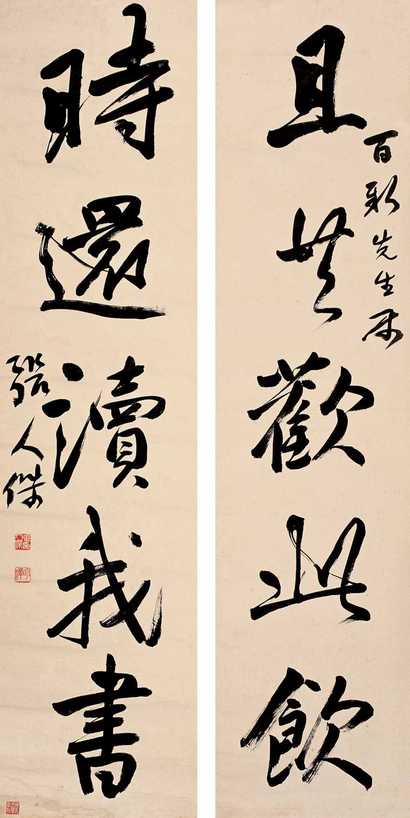 且共歡此飲
百新先生屬
時還讀我書
張人傑